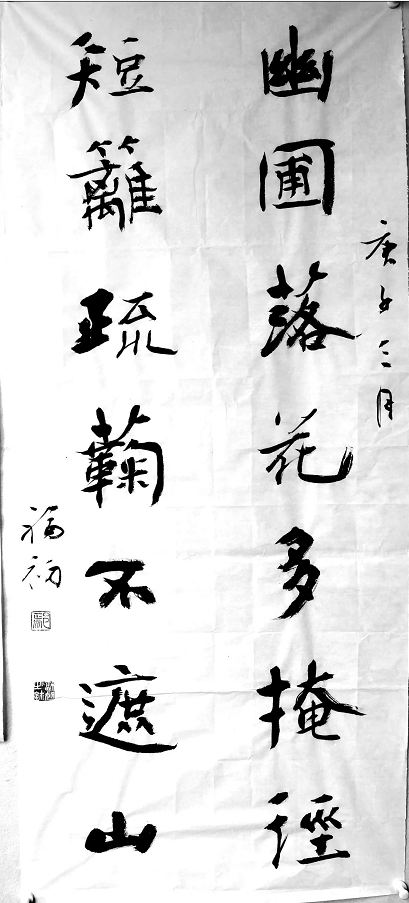 庚子三月
幽圃落花多掩徑
短籬疏蘜不遮山
福初